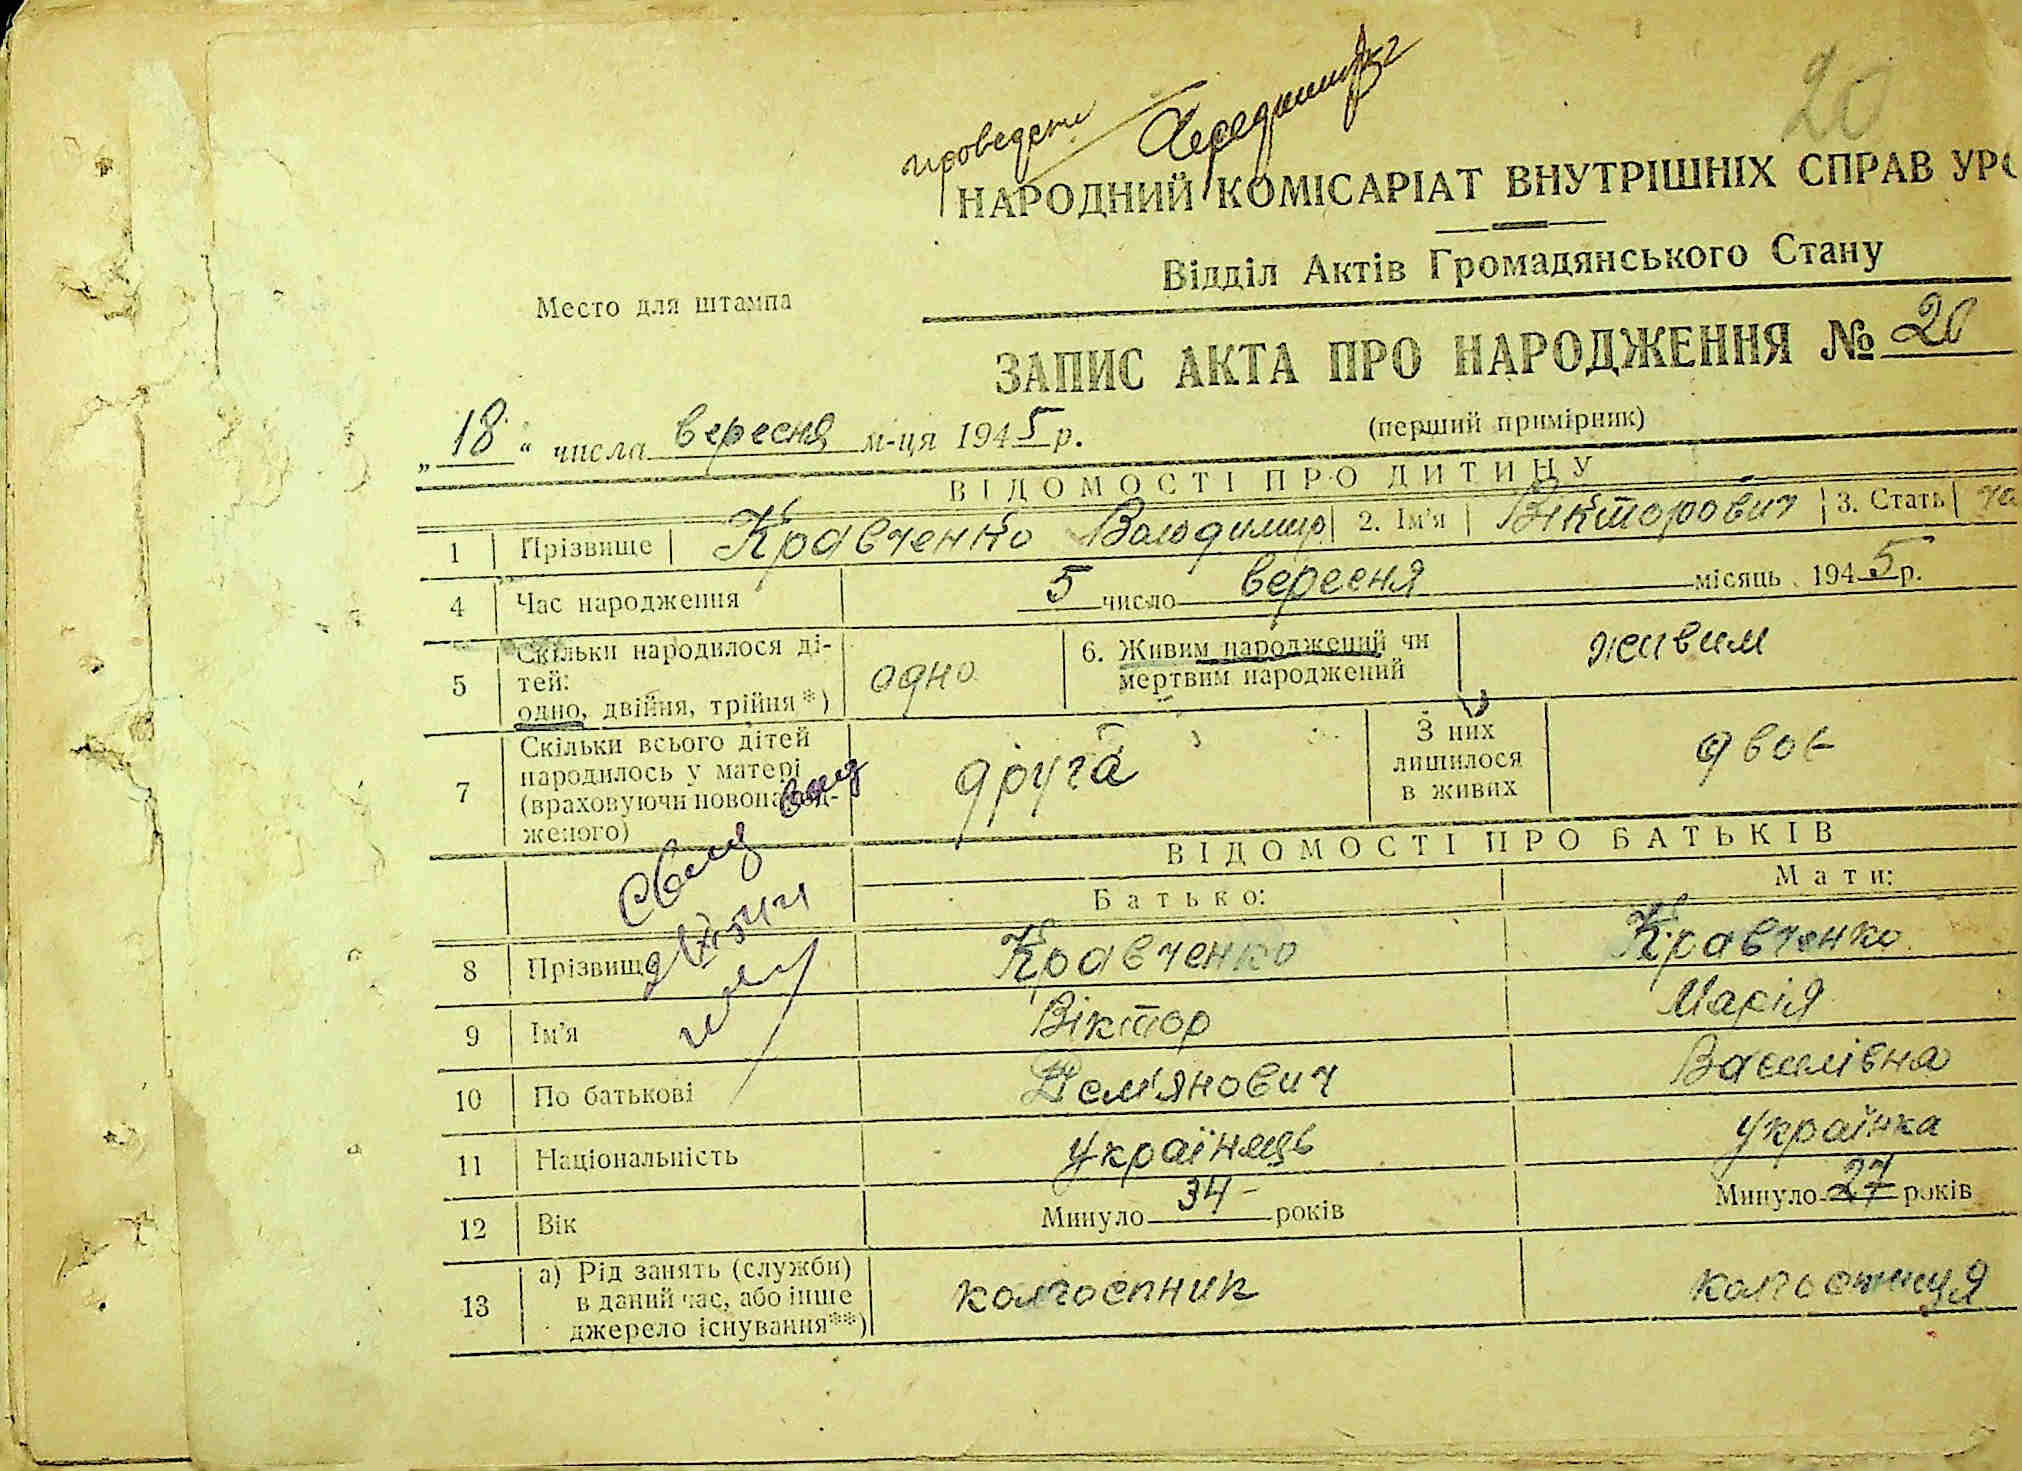 20
проведено
НАРОДНИЙ КОМІСАРІАТ ВНУТРІШНІХ СПРАВ УРС
Відділ Актів Громадянського Стану
Место для штампа
ЗАПИС АКТА ПРО НАРОДЖЕННЯ № 20
(перший примірник)
„ 18 “ числа вересня м-ця 1945 р.
ВІДОМОСТІ ПРО ДИТИНУ
1 Прізвище Кравченко Володимир 2. Ім'я Вікторович 3. Стать
4 Час народження 5 число вересня місяць 1945 р.
5 Скільки народилося ді-
тей:
одно, двійня, трійня*) одно 6. Живим народжений чи
мертвим народжений живим
7 Скільки всього дітей
народилось у матері
(враховуючи новонарод-
женого) друга З них
лишилося
в живих двоє
ВІДОМОСТІ ПРО БАТЬКІВ
Батько: Мати:
8 Прізвище Кравченко Кравченко
9 Ім'я Віктор Марія
10 По батькові Дем'янович Василівна
11 Національність Українець Українка
12 Вік Минуло 34 років Минуло 27 років
13 а) Рід занять (служби)
в даний час, або інше
джерело існування**) колгоспник колгоспниця